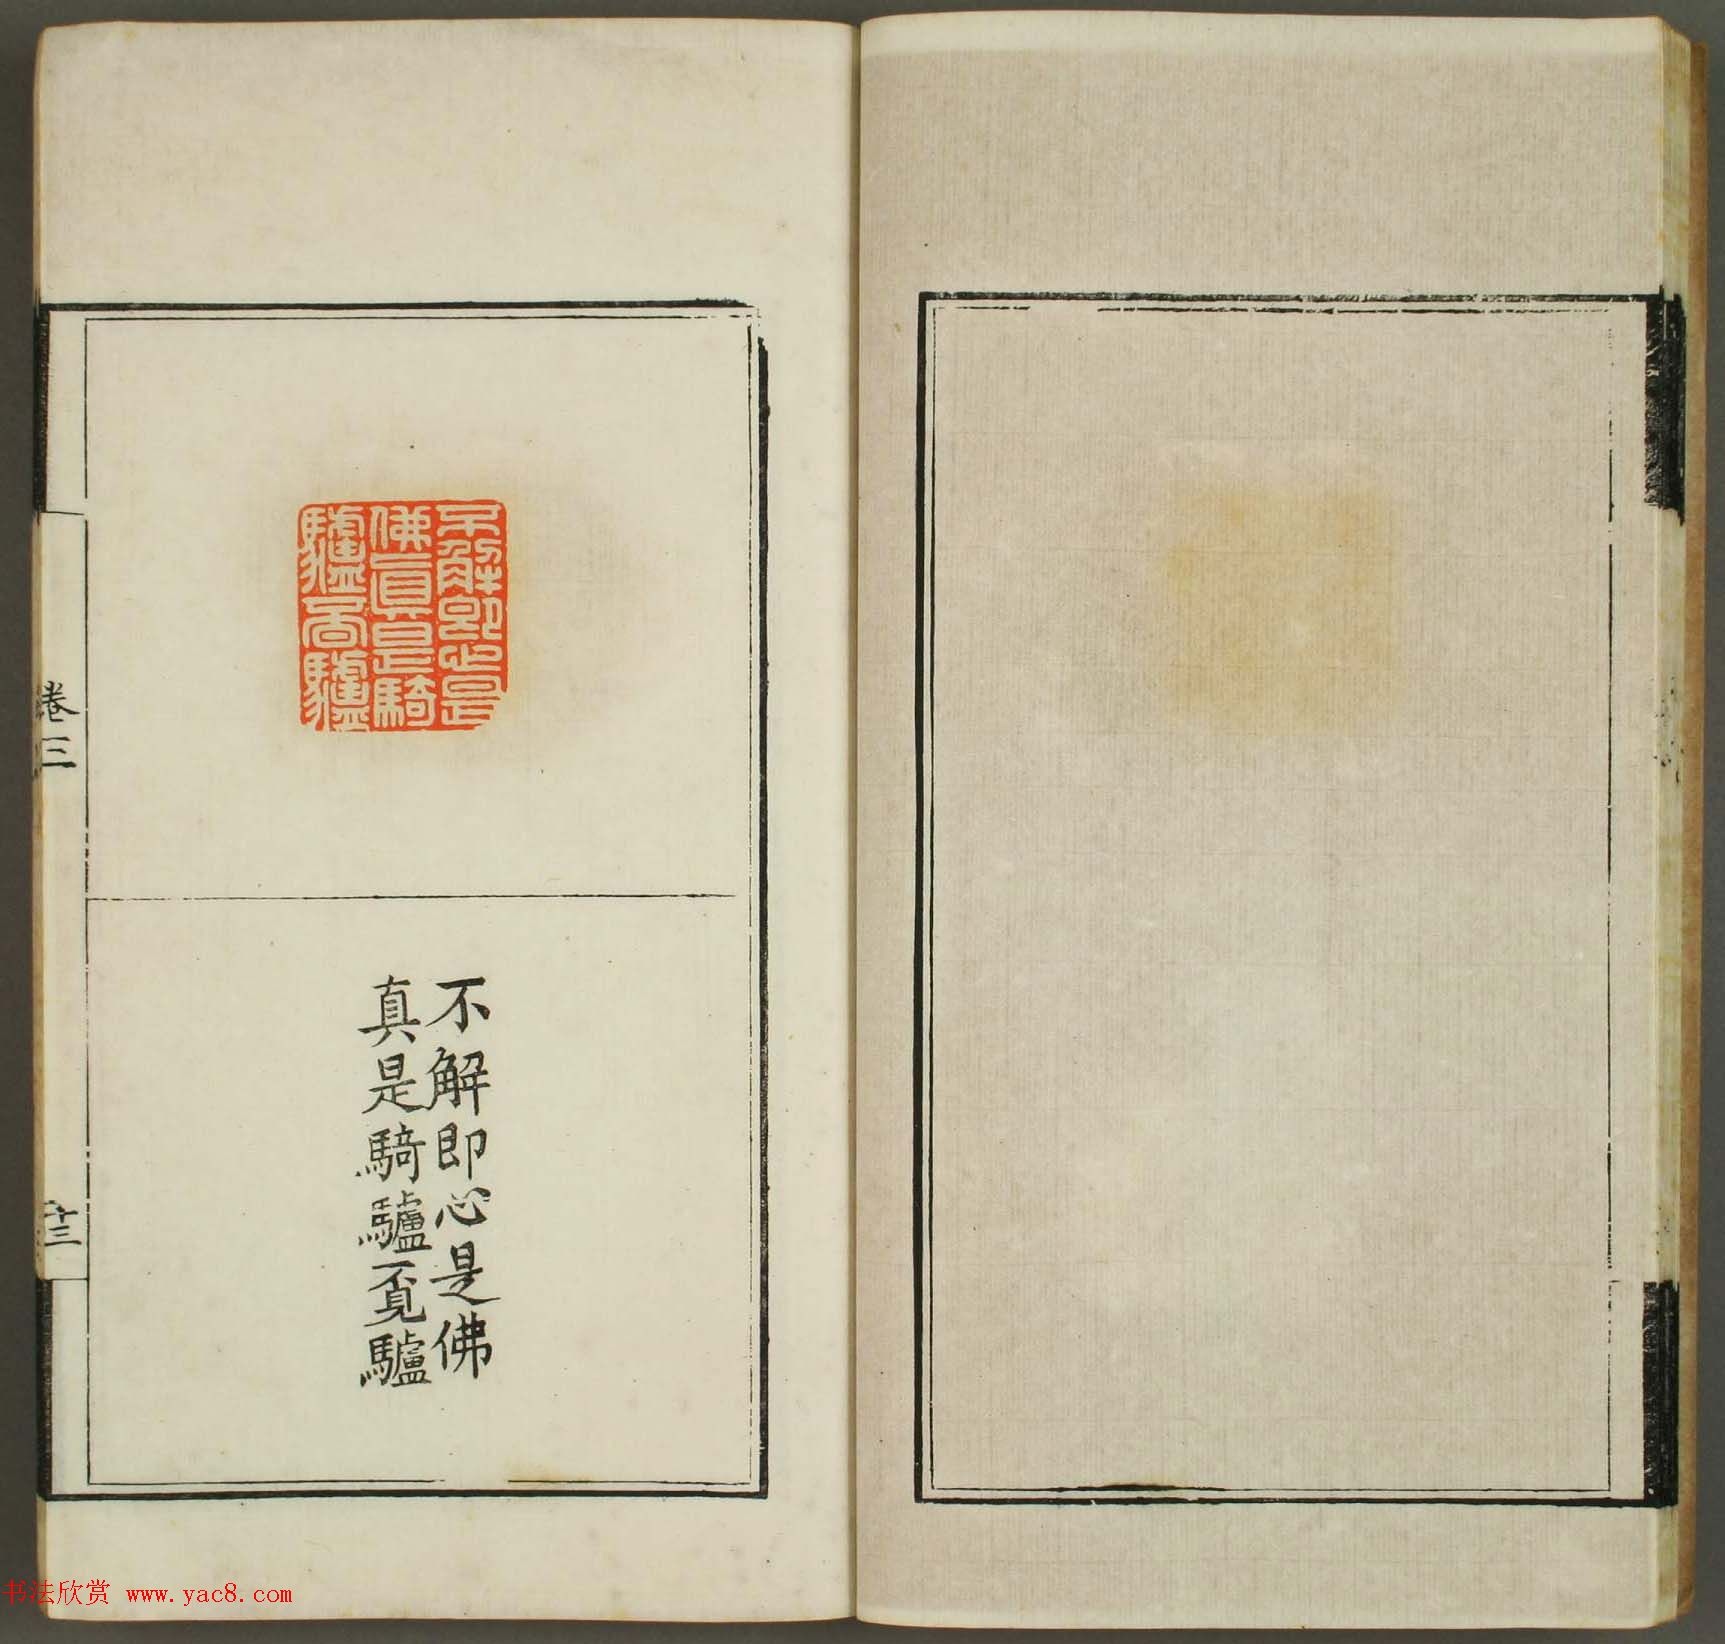 不解即心是
佛眞是騎
驢覔驢
不解即心是佛
真是騎驢覔驢
卷三
十三
书法欣赏 www.yac8.com